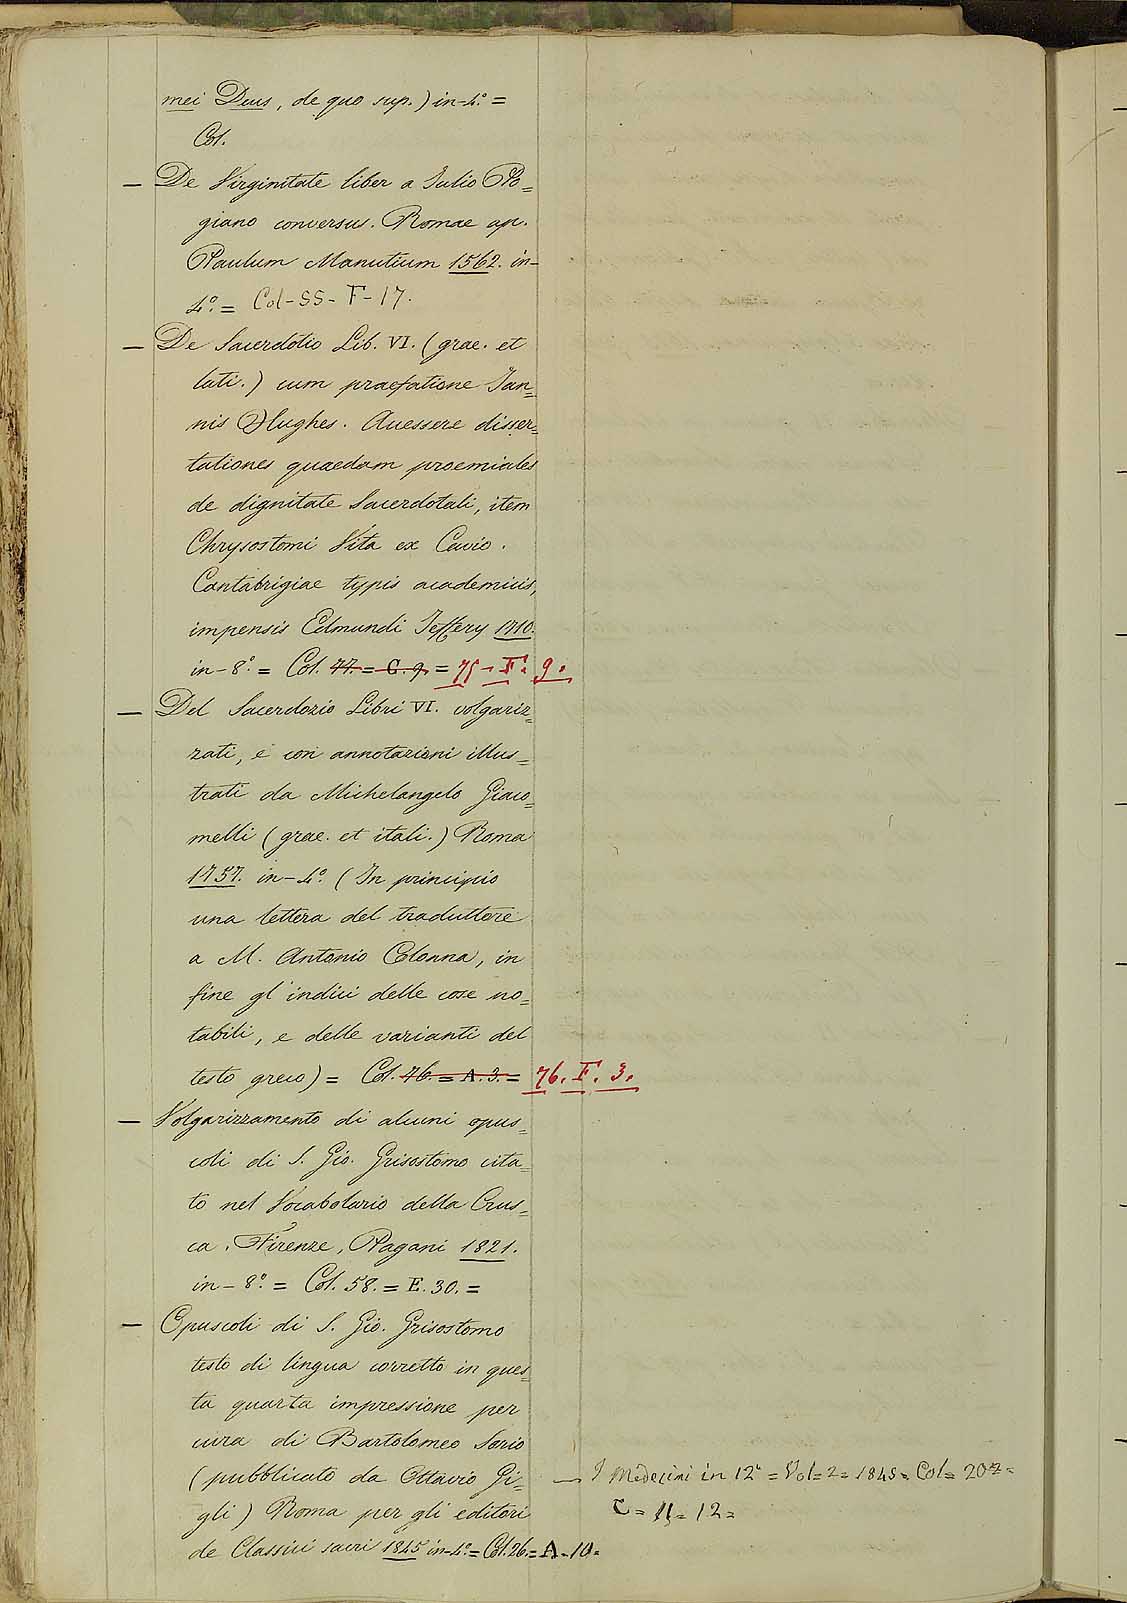 mei Deus, de quo sup.) in-4.º =
Col.
— De Virginitate liber a Julio Po=
giano conversus. Romae ap.
Paulum Manutium 1562. in-
4.º = Col-SS-F-17.
— De Sacerdotio Lib. VI. (grae. et
lati.) cum praefatione Jan=
nis Hughes. Accessere disser=
tationes quaedam proemiales
de dignitate Sacerdotali, item
Chrysostomi Vita ex Cavio.
Cantabrigiae typis academicis,
impensis Edmundi Jeffery 1710.
in-8.º = Col. 77. = C. 9. = 75 - F. 9.
— Del Sacerdozio Libri VI. volgariz=
zati, e con annotazioni illus=
trati da Michelangelo Giaco=
melli (grae. et itali.) Roma
1757. in-4.º (In principio
una lettera del traduttore
a M. Antonio Colonna, in
fine gl'indici delle cose no=
tabili, e delle varianti del
testo greco) = Col. 76. = A. 3. = 76. F. 3.
— Volgarizzamento di alcuni opus=
coli di S. Gio. Grisostomo cita=
to nel Vocabolario della Crus=
ca. Firenze, Pagani 1821.
in-8.º = Col. 58. = E. 30. =
— Opuscoli di S. Gio. Grisostomo
testo di lingua corretto in ques=
ta quarta impressione per
cura di Bartolomeo Sorio
(pubblicato da Ottavio Gi=
gli) Roma per gli editori
de Classici sacri 1845 in-4.º = Col. 26. = A-10.
— I Medecini in 12º = Vol = 2 = 1845 = Col =
C = 11 = 12 =